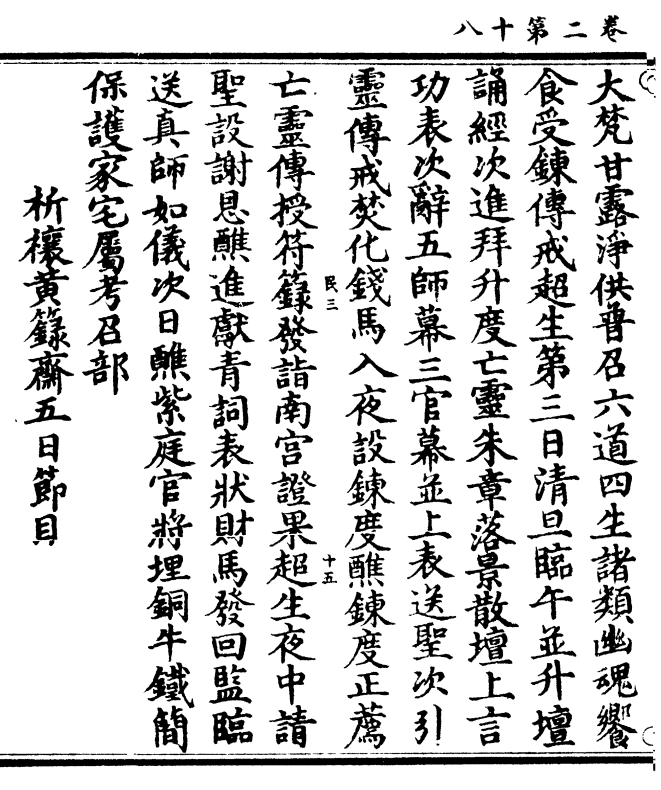 卷二第十八
大梵甘露淨供普召六道四生諸類幽魂饗
食受鍊傳戒超生第三日清旦臨午並升壇
誦經次進拜升度亡靈朱章落景散壇上言
功表次辭五師幕三官幕並上表送聖次引
靈傳戒焚化錢馬入夜設鍊度醮鍊度正薦
民三
亡靈傳授符籙發詣南宮證果超生夜中請
十五
聖設謝恩醮進獻青詞表狀財馬發回監臨
送真師如儀次日醮紫庭官將埋銅牛鐵簡
保護家宅屬考召部
祈禳黃籙齋五日節目